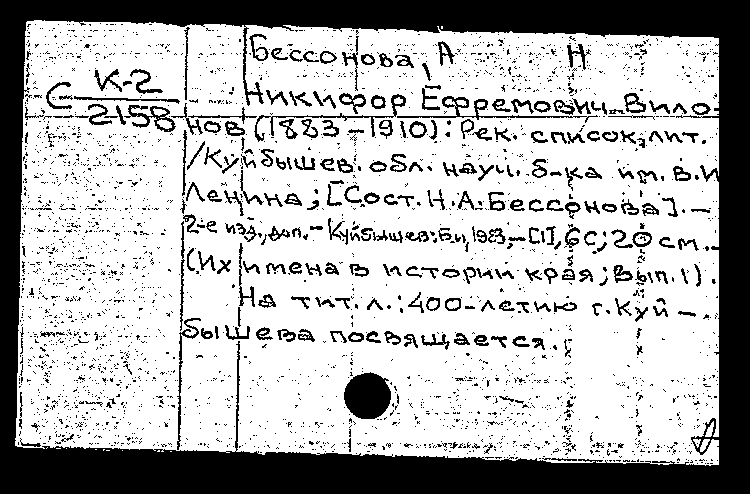 Бессонова, А Н
С К-2
2158
Никифор Ефремович Вило-
нов (1883-1910): Рек. список лит.
/Куйбышев. обл. науч. б-ка им. В.И
Ленина; [Сост. Н.А. Бессонова]. -
2-е изд., доп. - Куйбышев: Б.и, 1983. - [1], 6 с; 20 см. -
(Их имена в истории края; Вып. 1).
На тит. л.: 400-летию г. Куй-
бышева посвящается.